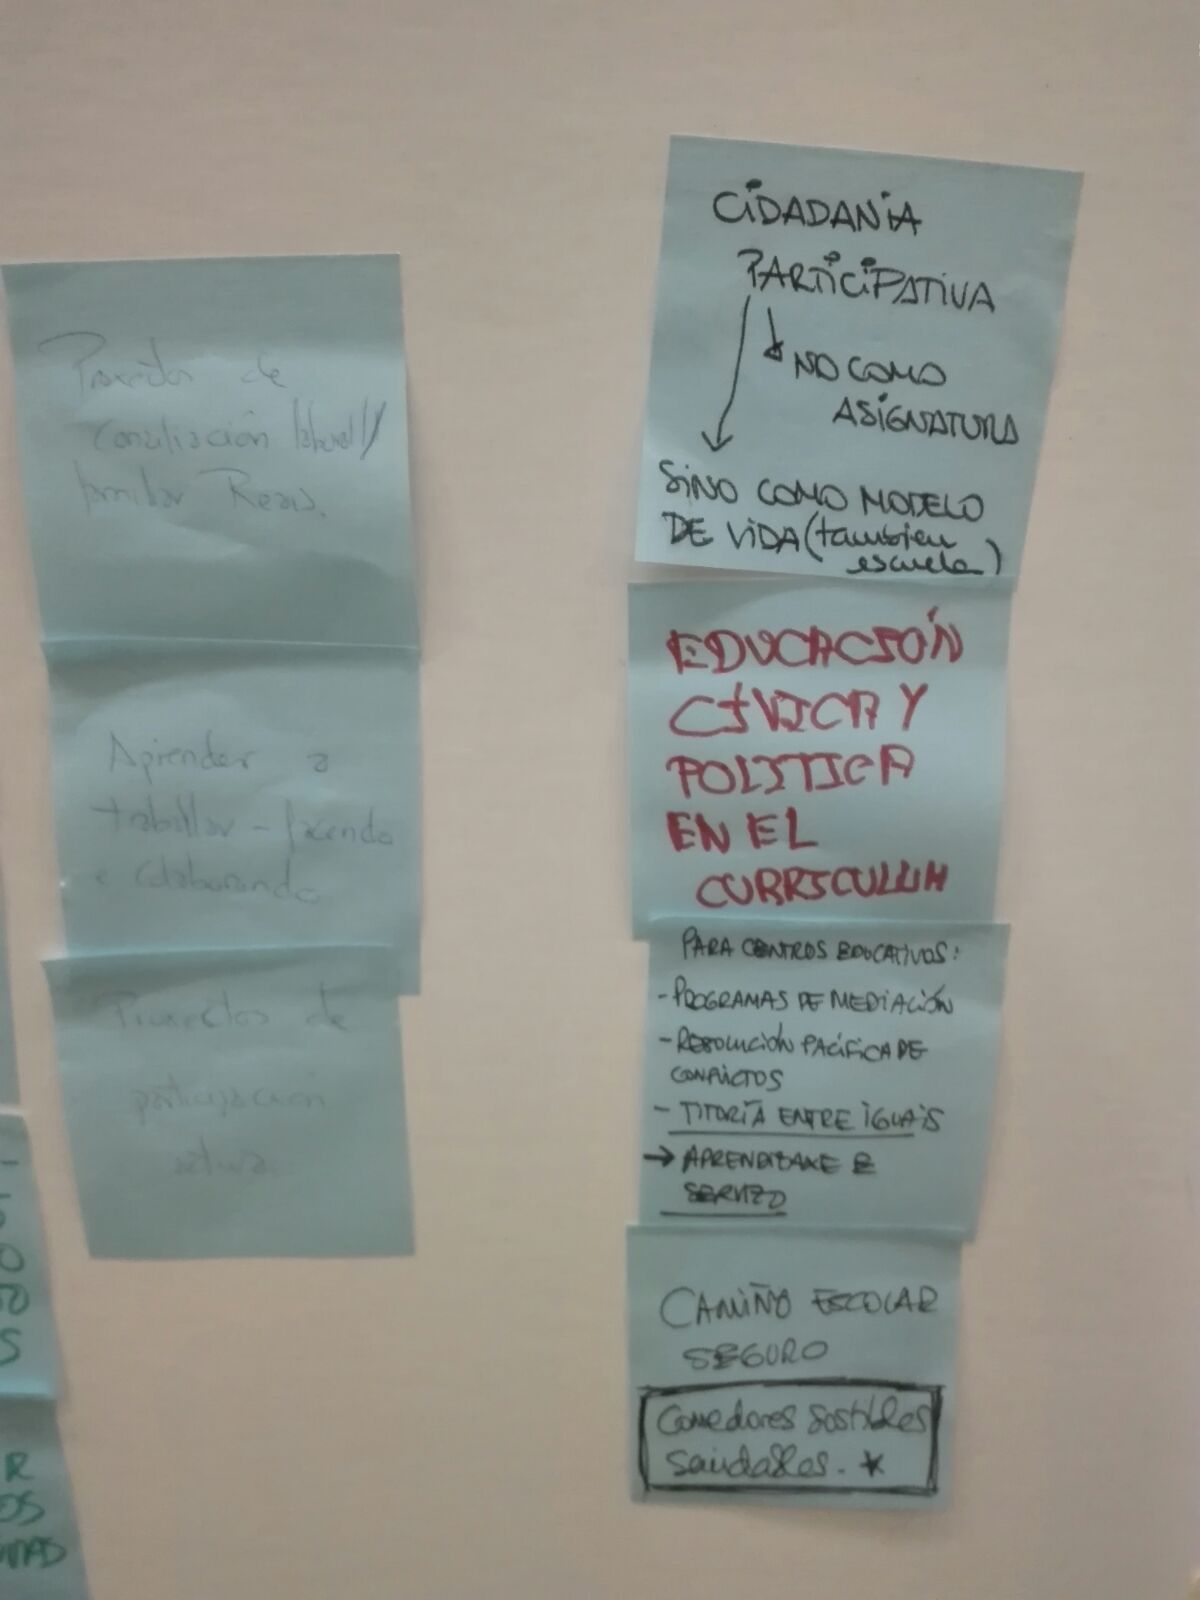 Proxectos de
conciliación laboral/
familiar Reais.
Aprender a
traballar - facendo
e colaborando
Proxectos de
participación
activa
CIDADANIA
PARTICIPATIVA
NO COMO
ASIGNATURA
SINO COMO MODELO
DE VIDA (tambien
escuela)
EDUCACIÓN
CÍVICA Y
POLITICA
EN EL
CURRICULUM
PARA CENTROS EDUCATIVOS:
- PROGRAMAS DE MEDIACIÓN
- RESOLUCIÓN PACÍFICA DE
CONFLICTOS
- TITORÍA ENTRE IGUAIS
→ APRENDIZAXE E
SERVIZO
CAMIÑO ESCOLAR
SEGURO
Comedores
saudables. *
R
OS